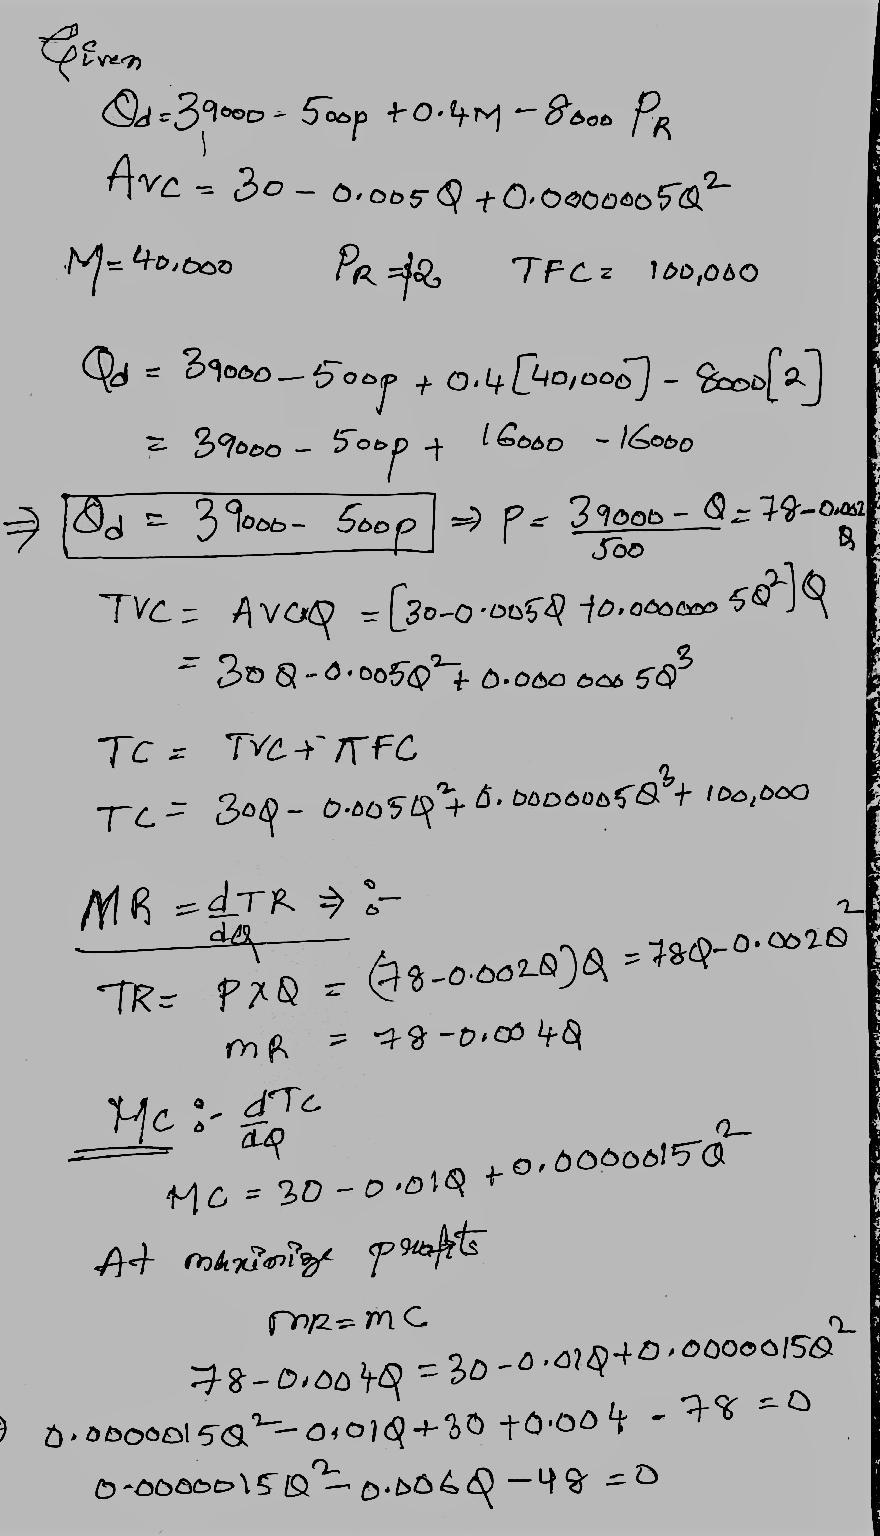 Given
Qd = 39000 - 500p + 0.4M - 8000 PR
AVC = 30 - 0.005Q + 0.0000005Q²
M = 40,000 PR = $2 TFC = 100,000
Qd = 39000 - 500p + 0.4[40,000] - 8000[2]
= 39000 - 500p + 16000 - 16000
⇒ Qd = 39000 - 500p ⇒ P = (39000 - Q)/500 = 78 - 0.002Q
TVC = AVC×Q = [30 - 0.005Q + 0.0000005Q²]Q
= 30Q - 0.005Q² + 0.0000005Q³
TC = TVC + TFC
TC = 30Q - 0.005Q² + 0.0000005Q³ + 100,000
MR = dTR/dQ ⇒ :-
TR = P×Q = (78 - 0.002Q)Q = 78Q - 0.002Q²
MR = 78 - 0.004Q
MC :- dTC/dQ
MC = 30 - 0.01Q + 0.0000015Q²
At maximize profits
MR = MC
78 - 0.004Q = 30 - 0.01Q + 0.0000015Q²
⇒ 0.0000015Q² - 0.01Q + 30 + 0.004 - 78 = 0
0.0000015Q² - 0.006Q - 48 = 0